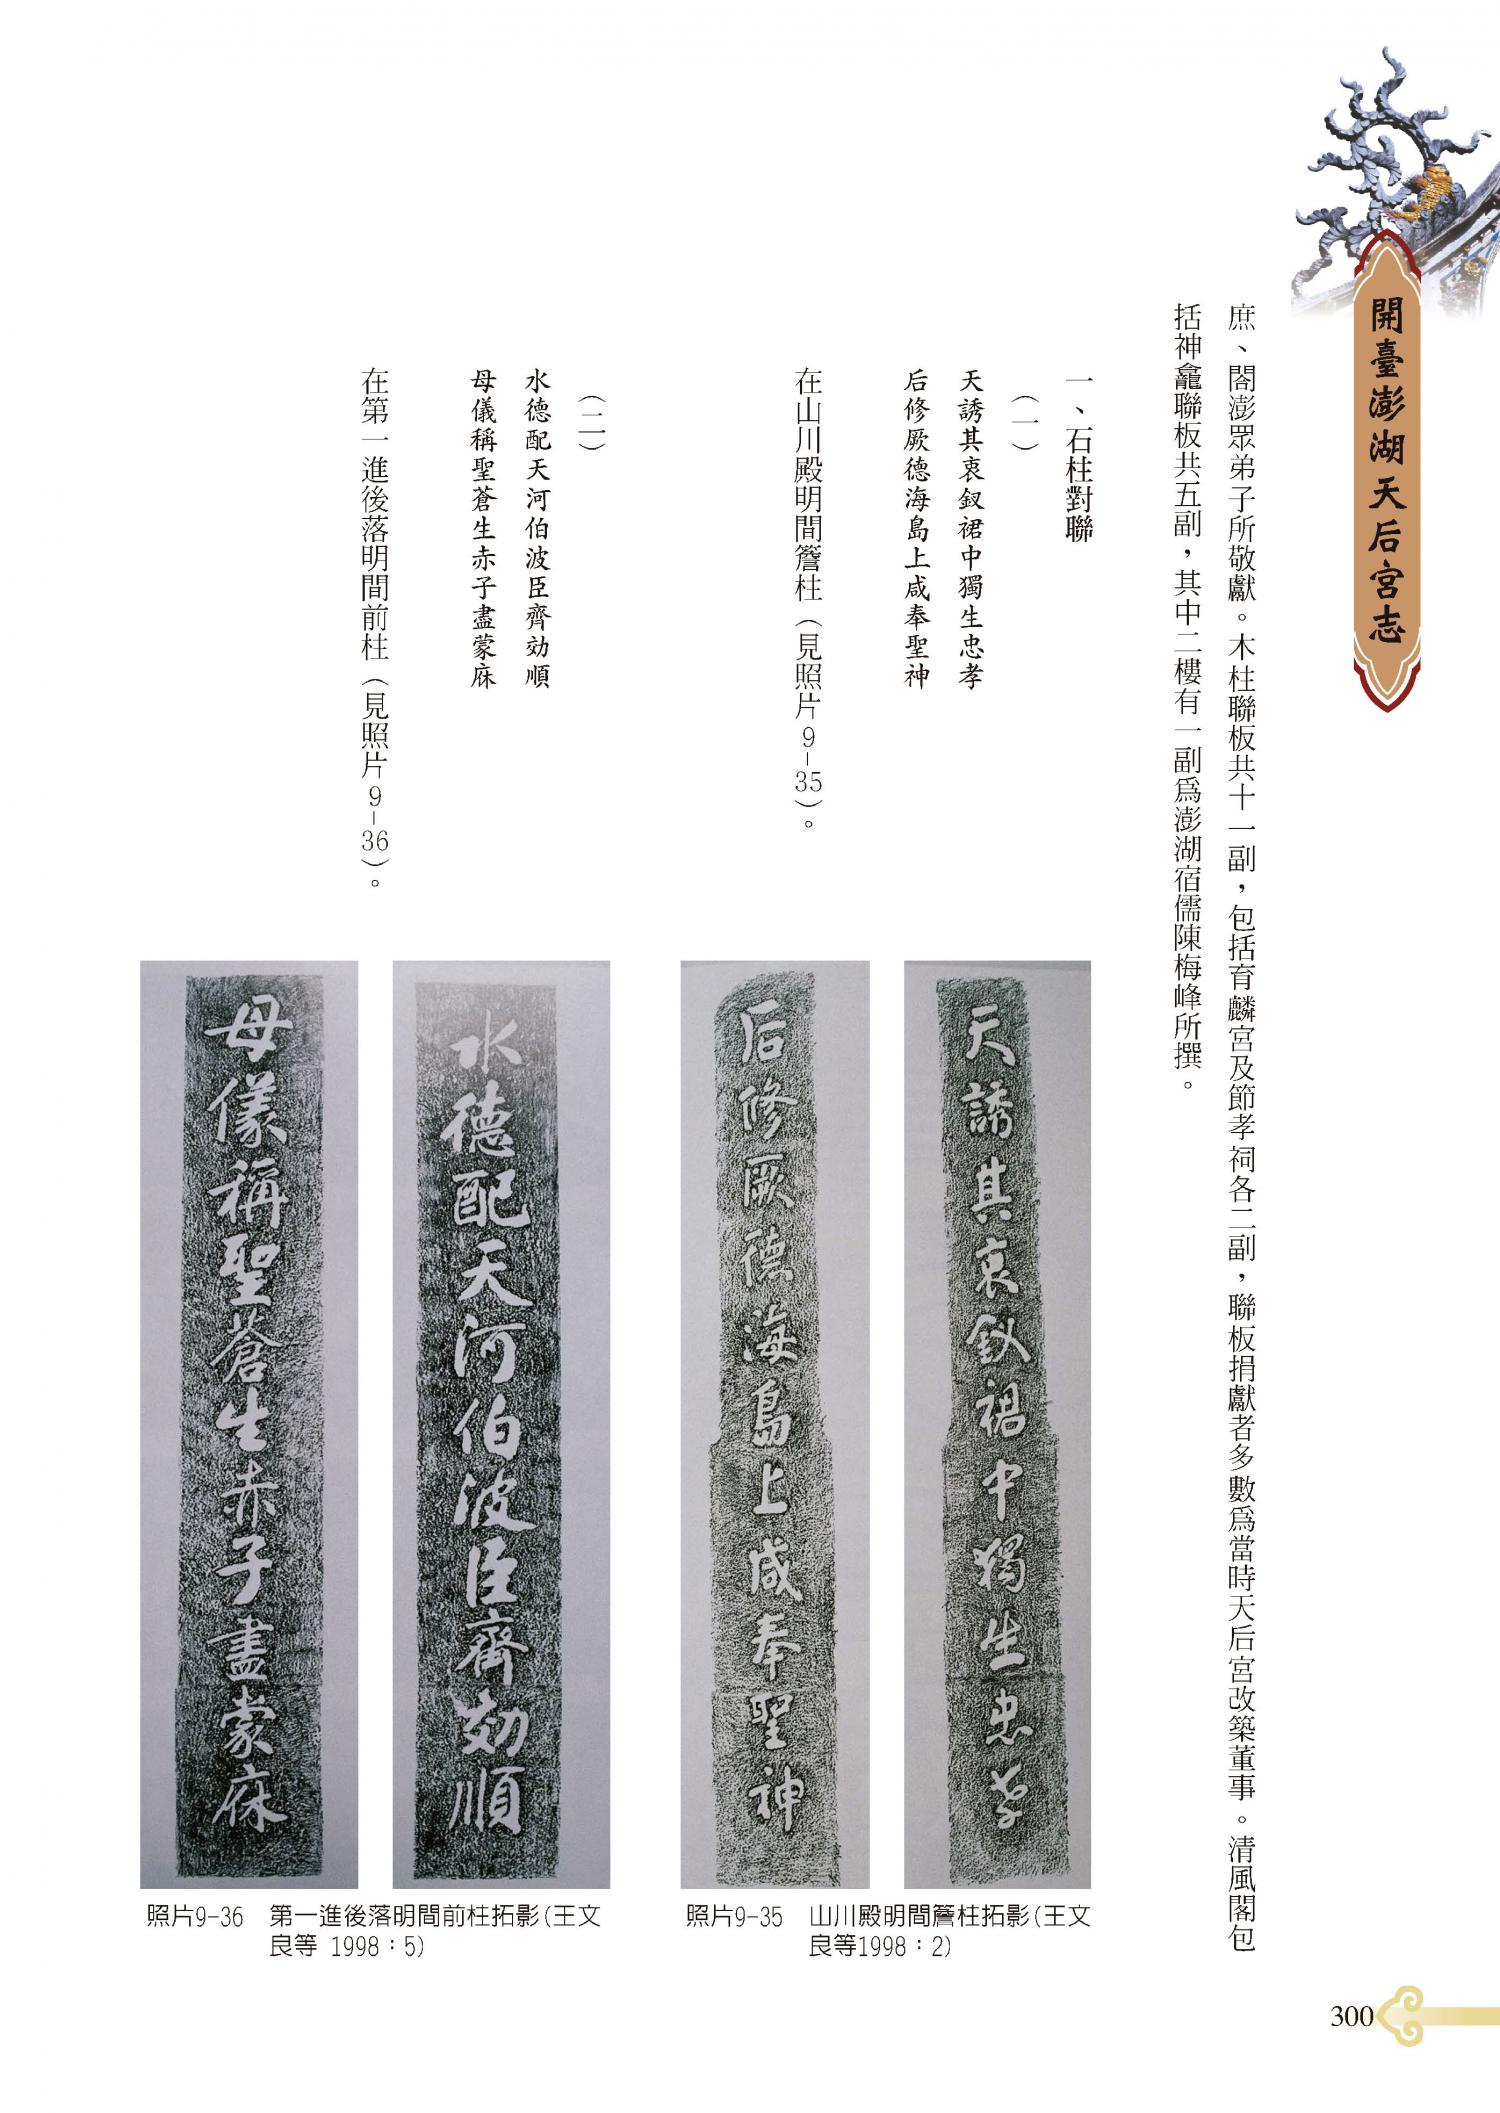 開臺澎湖天后宮志
庶、閤澎眾弟子所敬獻。木柱聯板共十一副，包括育麟宮及節孝祠各二副，聯板捐獻者多數為當時天后宮改築董事。清風閣包
括神龕聯板共五副，其中二樓有一副為澎湖宿儒陳梅峰所撰。
一、石柱對聯
（一）
天誘其衷釵裙中獨生忠孝
后修厥德海島上咸奉聖神
在山川殿明間簷柱（見照片9-35）。
（二）
水德配天河伯波臣齊効順
母儀稱聖蒼生赤子盡蒙庥
在第一進後落明間前柱（見照片9-36）。
天誘其衷釵裙中獨生忠孝
后修厥德海島上咸奉聖神
照片9-35　山川殿明間簷柱拓影(王文
良等1998：2)
水德配天河伯波臣齊効順
母儀稱聖蒼生赤子盡蒙庥
照片9-36　第一進後落明間前柱拓影(王文
良等 1998：5)
300